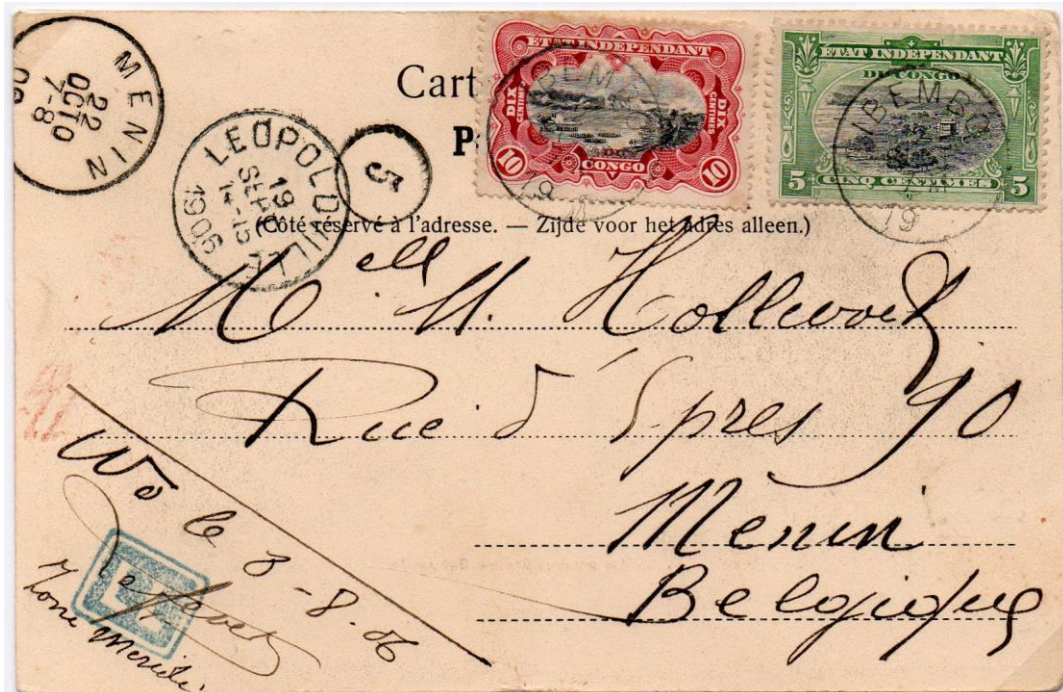 MENIN
22
OCTO
7-8
LEOPOLDVILLE
19
SEPT
1906
5
Cart
P
ETAT INDEPENDANT
DIX
CENTIMES
DIX
CENTIMES
10 CONGO 10
ETAT INDEPENDANT
DU CONGO
5 CINQ CENTIMES 5
IBEMBO
IBEMBO
(Côté réservé à l'adresse. — Zijde voor het adres alleen.)
Melle M.
Rue d'Ypres 90
Menin
Belgique
le 3-8-06
Zone